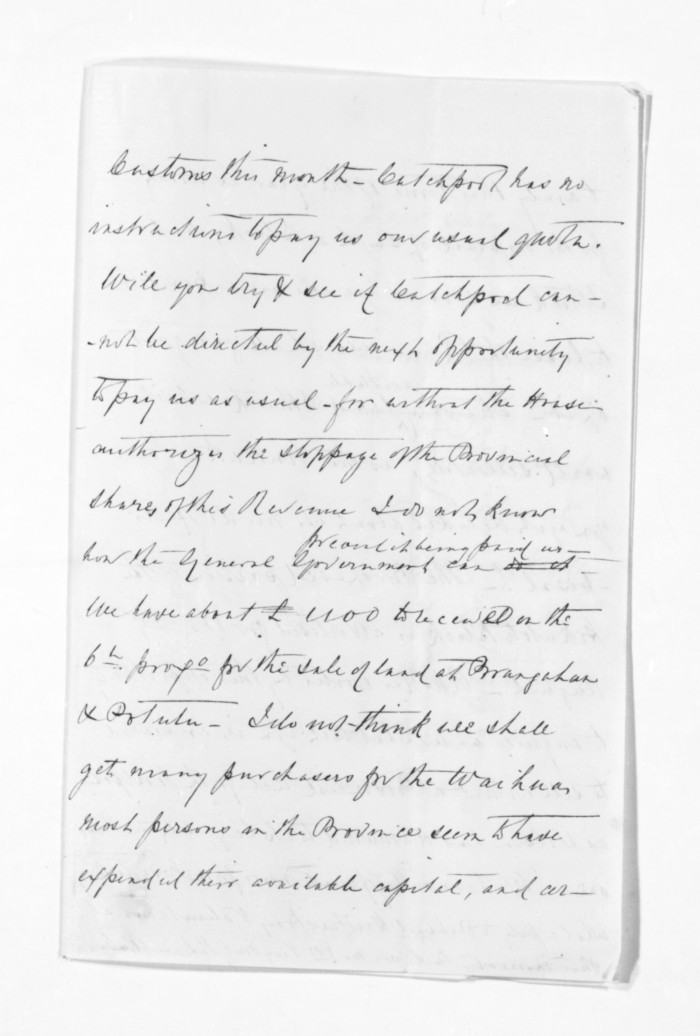 Customs this month - Catchpool has no
instructions to pay us our usual quota.
Will you try & see if Catchpool can-
-not be directed by the next opportunity
to pay us as usual - for without the House
authorizes the stoppage of the Provincial
shares of this Revenue I do not know
prevent it being paid us -
how the General Government can do it -
We have about £ 1100 to receive on the
6th. proxo for the sale of land at Porangahau
& Potutu - I do not think we shall
get many purchasers for the Waihua,
most persons in the Province seem to have
expended their available capital, and cer-